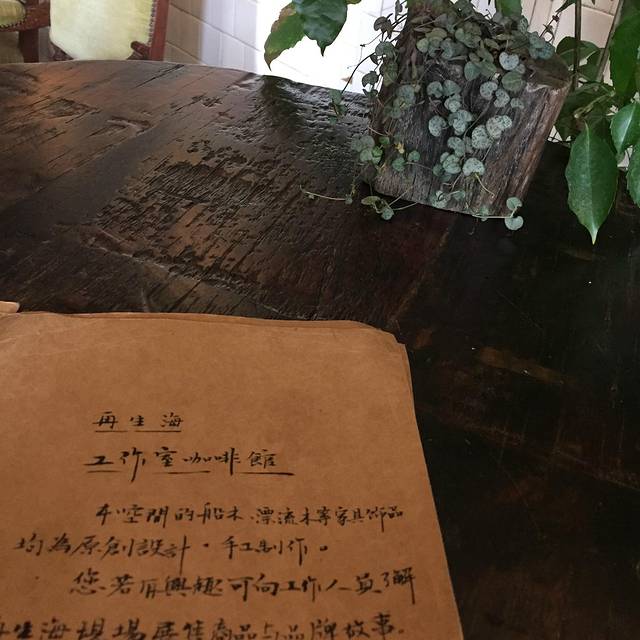 再生海
工作室咖啡館
本空間的船木、漂流木等家具飾品
均為原創設計,手工制作。
您若有興趣可向工作人員了解
再生海現場展售商品与品牌故事.